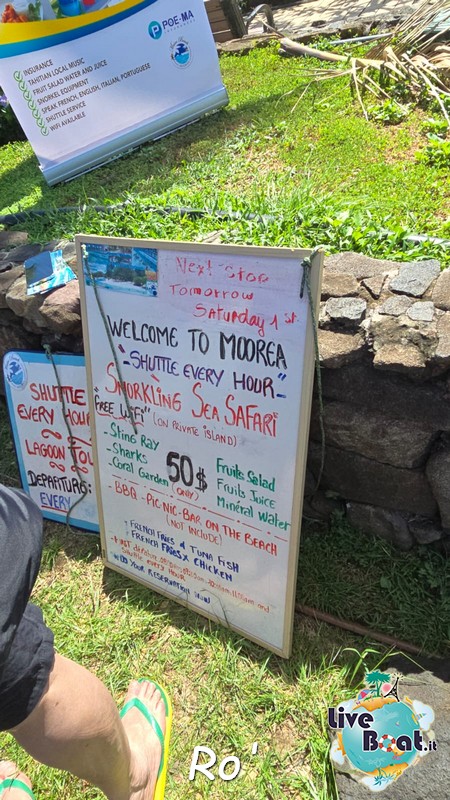 POE-MA
INSURANCE
TAHITIAN LOCAL MUSIC
FRUIT SALAD WATER AND JUICE
SNORKEL EQUIPMENT
SPEAK FRENCH, ENGLISH, ITALIAN, PORTUGUESE
SHUTTLE SERVICE
WIFI AVAILABLE
Next Stop
Tomorrow
Saturday 1st
WELCOME TO MOOREA
"SHUTTLE EVERY HOUR"
SNORKLING SEA SAFARI
"FREE WIFI" (ON PRIVATE ISLAND)
- Sting Ray
- Sharks
- Coral Garden
50$
(ONLY)
Fruits Salad
Fruits Juice
Mineral Water
- BBQ - PIC NIC - BAR ON THE BEACH
(NOT INCLUDE)
FRENCH FRIES & TUNA FISH
FRENCH FRIES & CHICKEN
Shuttle every Hour
DO YOUR RESERVATION NOW
SHUTTLE
EVERY HOUR
LAGOON TOU
DEPARTURS:
EVERY
Live
Boat.it
Ro'